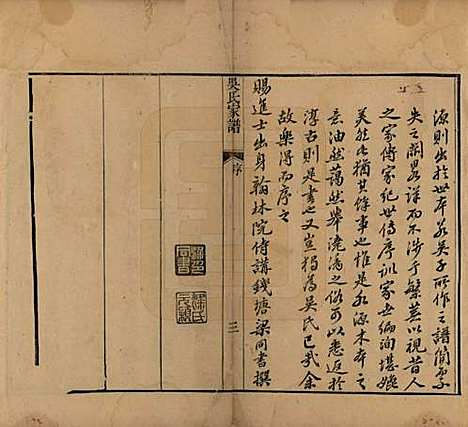 源則出於世本歐吳子所作之譜簡而不
失之闕畧詳而不涉于繁蕪以視昔人
之家傳家紀世傳序訓家世編洵堪媲
美然此猶其餘事也惟是水源木本之
意油然藹然舉澆漓之俗可以悉返於
淳古則是書也又豈獨為吳氏已哉余
故樂得而序之
賜進士出身翰林院侍講錢塘梁同書撰
吳氏家譜
序
三